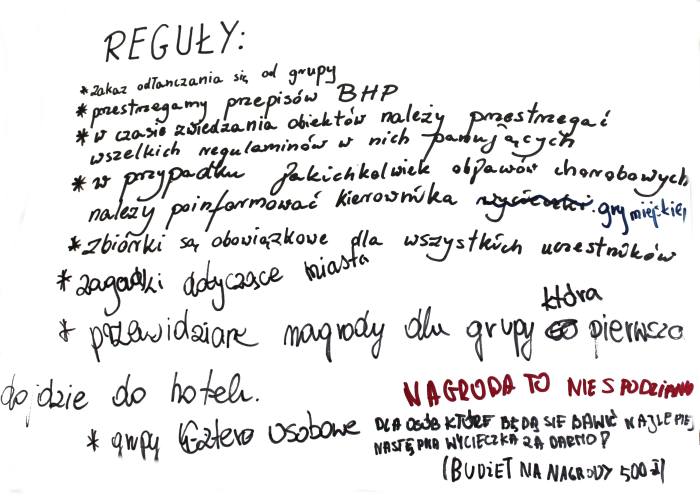 REGUŁY:
* Zakaz odłanczania się od grupy
* przestrzegamy przepisów BHP
* w czasie zwiedzania obiektów należy przestrzegać
wszelkich regulaminów w nich panujących
* w przypadku jakichkolwiek objawów chorobowych
należy poinformować kierownika wycieczki. gry miejskiej
* zbiórki są obowiązkowe dla wszystkich uczestników
* zagadki dotyczące miasta
* przewidziane nagrody dla grupy która pierwsza
dojdzie do hotelu.
NAGRODA TO NIESPODZIANKA
* grupy cztero osobowe
DLA OSÓB KTÓRE BĘDĄ SIĘ BAWIĆ NAJLEPIEJ
NASTĘPNA WYCIECZKA ZA DARMO?
(BUDŻET NA NAGRODY 500 zł)